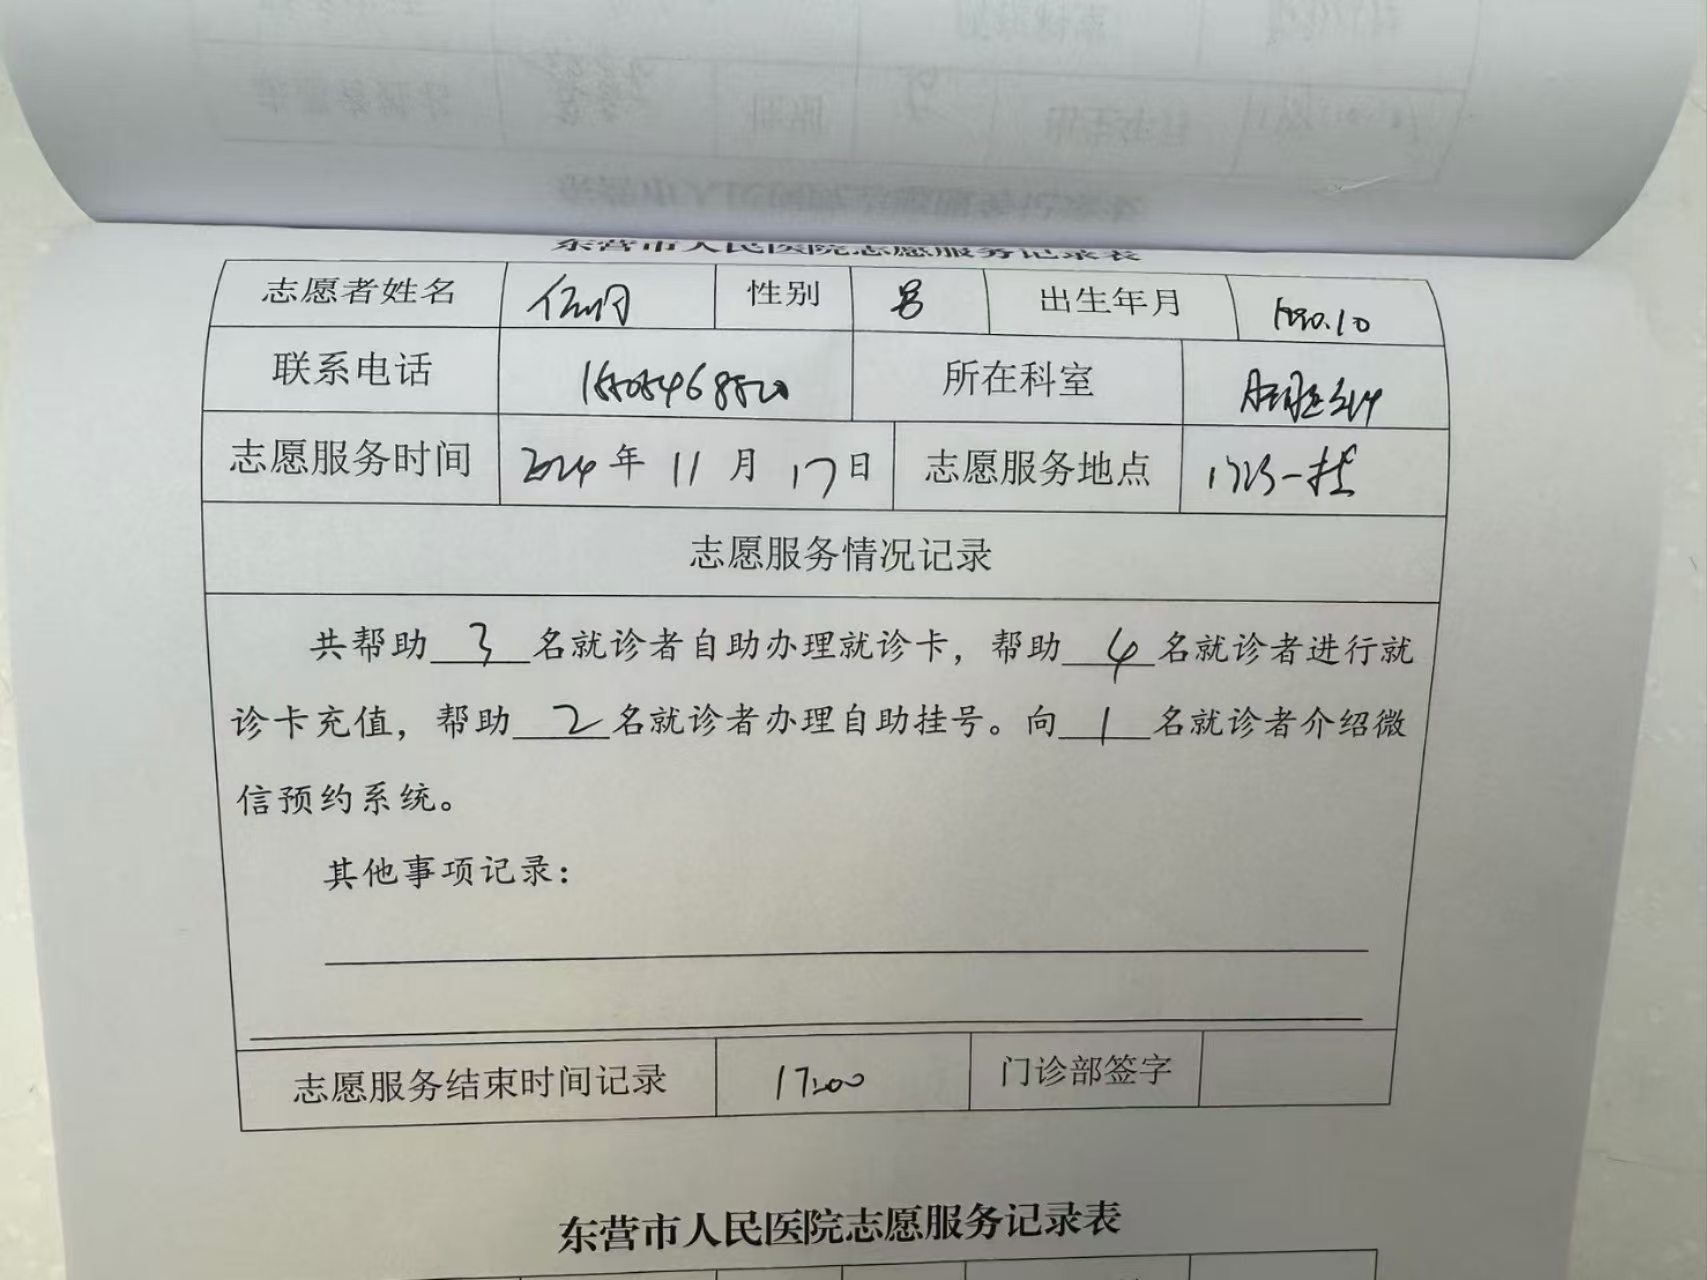 东营市人民医院志愿服务记录表
志愿者姓名 性别 男 出生年月 1990.10
联系电话 所在科室
志愿服务时间 2024年 11月 17日 志愿服务地点
志愿服务情况记录
共帮助 3 名就诊者自助办理就诊卡，帮助 4 名就诊者进行就
诊卡充值，帮助 2 名就诊者办理自助挂号。向 1 名就诊者介绍微
信预约系统。
其他事项记录：
志愿服务结束时间记录 17:00 门诊部签字
东营市人民医院志愿服务记录表